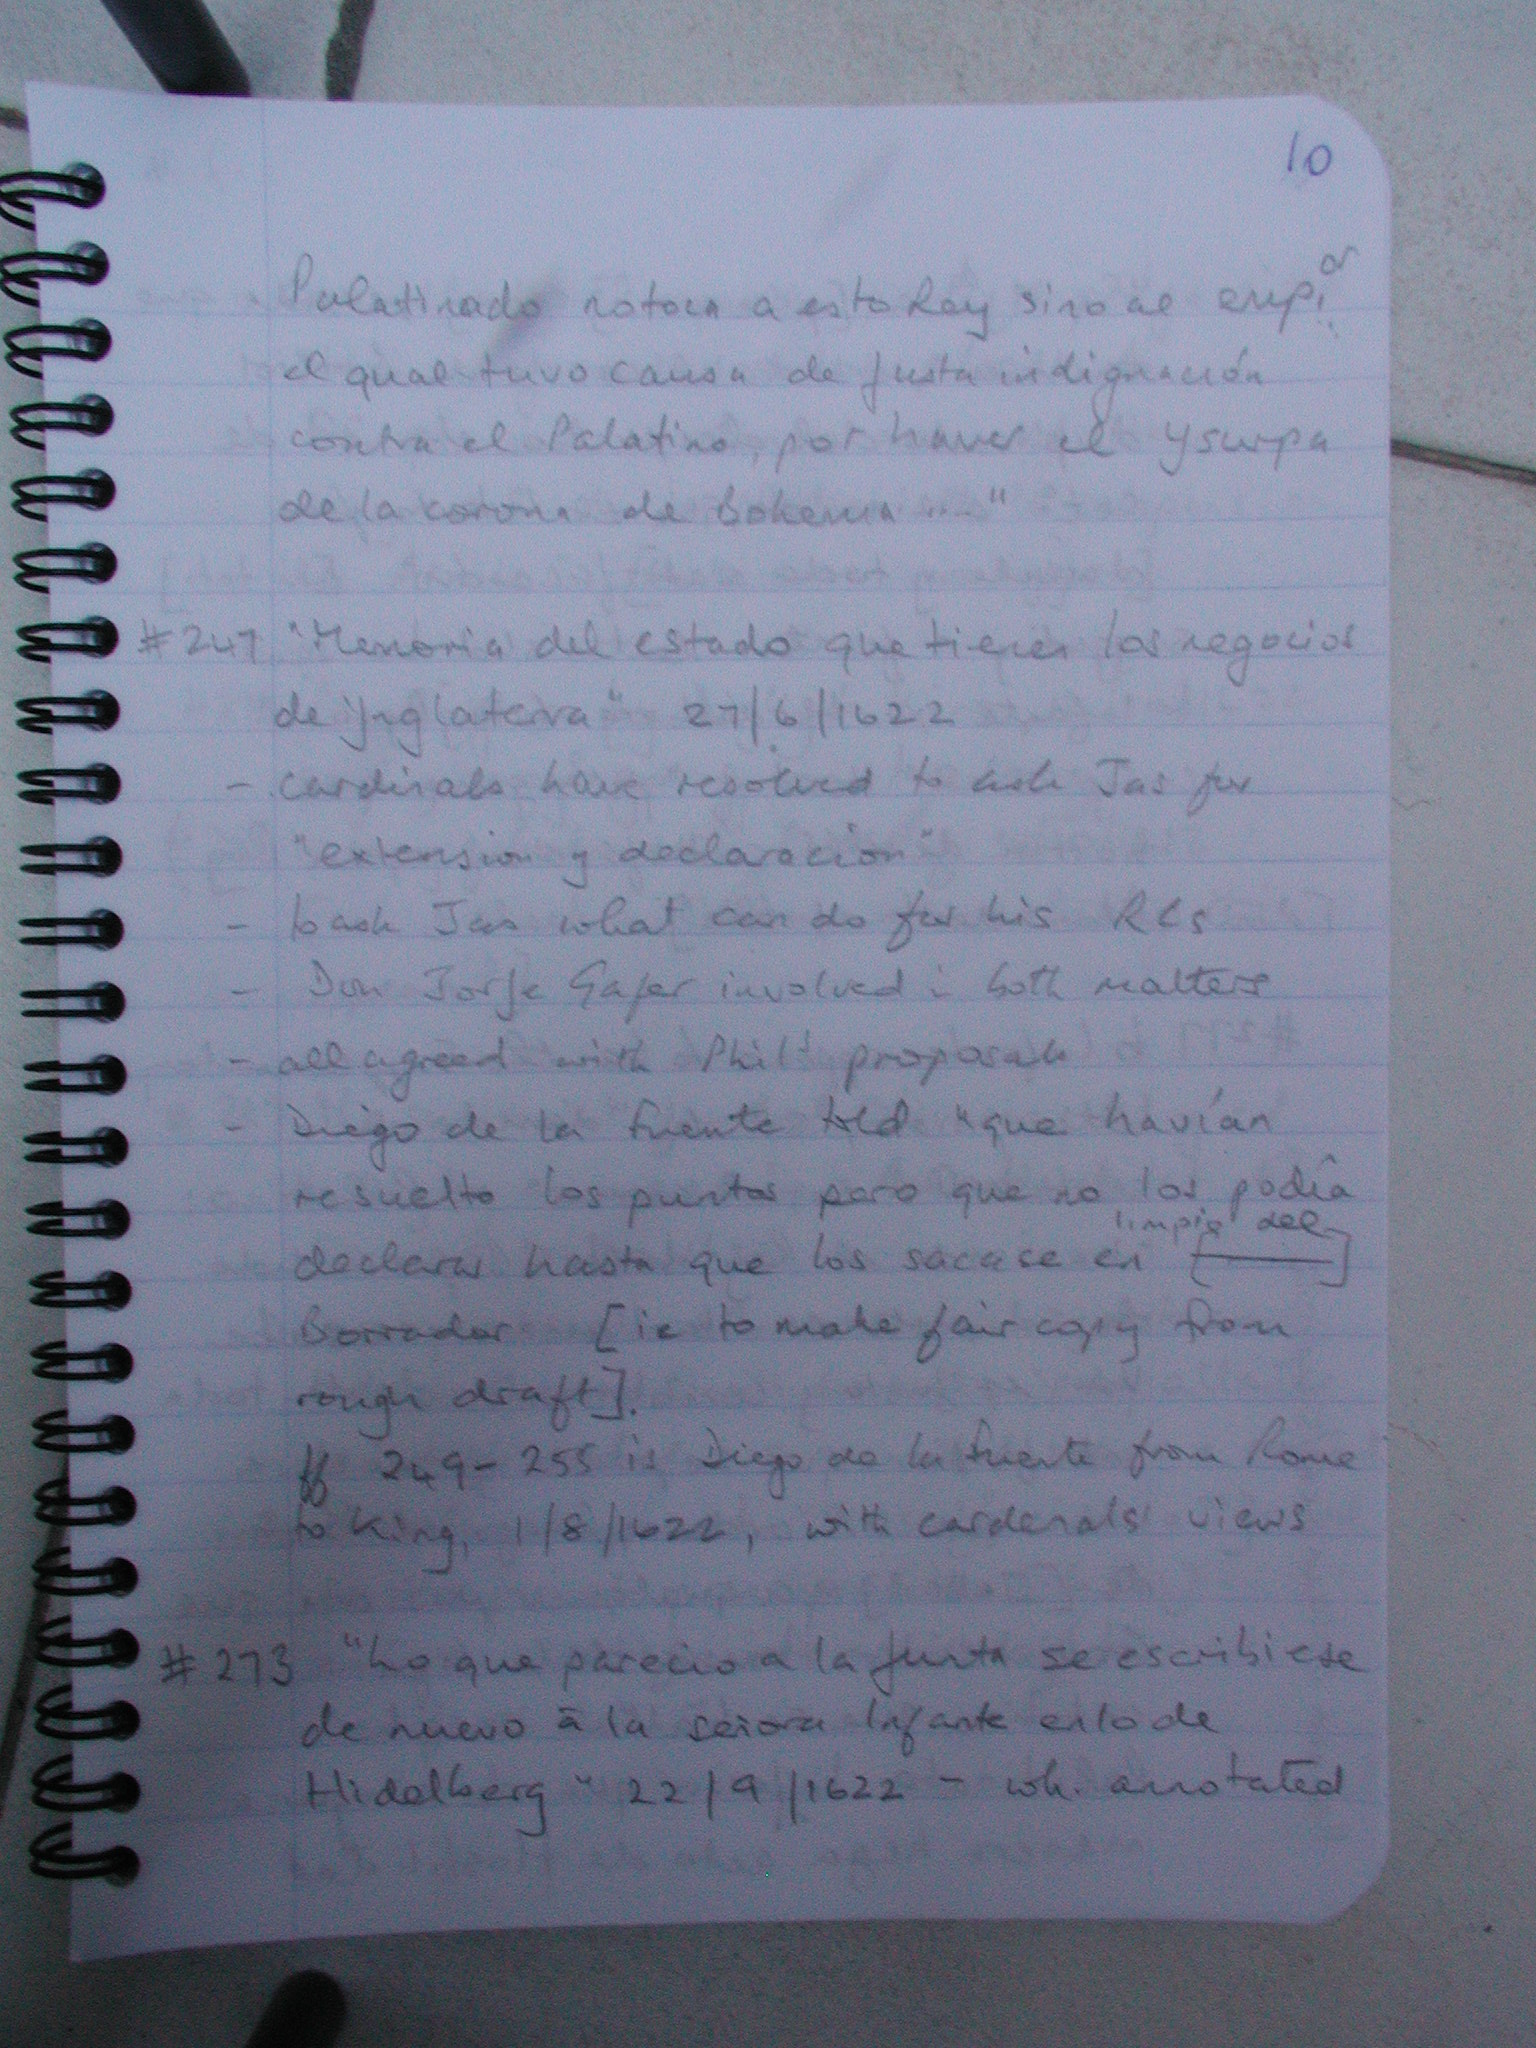 10
Palatinado no toca a esto Rey sino al emp.or
el qual tuvo causa de justa indignación
contra el Palatino, por haver el ysurpa
de la corona de Bohemia ...."
#247 "Memoria del estado que tienen los negocios
de ynglaterra" 27/6/1622
- cardinals have resolved to ask Jas for
"extension y declaracion"
- to ask Jas what can do for his RCs
- Don Jorje Gafer involved in both matters
- all agreed with Phil's proposals
- Diego de la Fuente told "que havían
resuelto los puntos pero que no los podía
limpio del
declarar hasta que los sacase en [ ]
Borrador [ie to make fair copy from
rough draft].
ff 249-255 is Diego de la Fuente from Rome
to King, 1/8/1622, with cardenals' views
#273 "Lo que parecio a la junta se escribiese
de nuevo à la señora Infante en lo de
Hidelberg" 22/9/1622 - wh. annotated